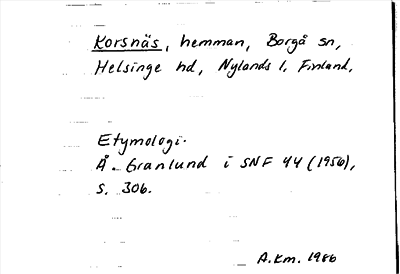 Korsnäs, hemman, Borgå sn,
Helsinge hd, Nylands l, Finland.
Etymologi.
Å. Granlund i SNF 44 (1956),
s. 306.
A.Km. 1986